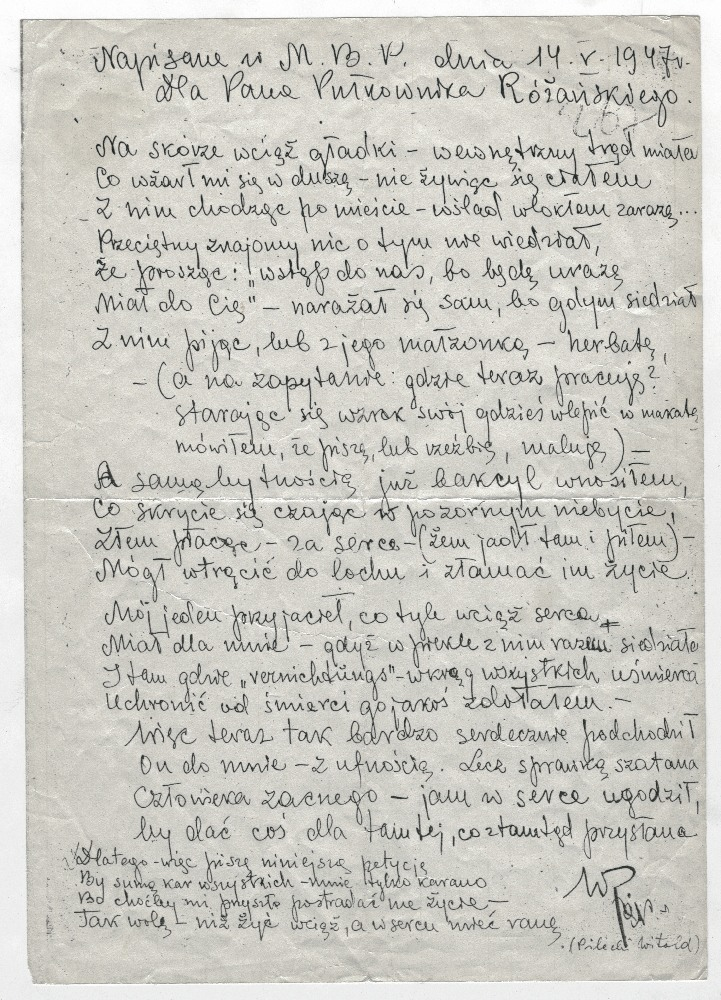 Napisane w M.B.P. dnia 14.V.1947r.
dla Pana Pułkownika Różańskiego.
Na skórze wciąż gładki – wewnętrzny trąd miałem
Co wżarł mi się w duszę – nie żywiąc się ciałem
Z nim chodząc po mieście – wślad wlokłem zarazę...
Przeciętny znajomy nic o tym nie wiedział,
Że prosząc: "wstąp do nas, bo będę urazę
Miał do Cię" – narażał się sam, bo gdym siedział
Z nim pijąc, lub z jego małżonką – herbatę,
– (a na zapytanie: gdzie teraz pracuję?
starając się wzrok swój gdzieś wlepić w makatę
mówiłem, że piszę, lub rzeźbię, maluję) –
A samą bytnością już bakcyl wnosiłem,
Co skrycie się czając w pozornym niebycie,
Złem płacąc – za serce – (żem jadł tam i piłem) –
Mógł wtrącić do lochu i złamać im życie
Mój jeden przyjaciel, co tyle wciąż serca
Miał dla mnie – gdyż w piekle z nim razem siedziałem
I tam gdzie „vernichtungs"– wkrąg wszystkich uśmiercał
Uchronić od śmierci go jakoś zdołałem. –
Więc teraz tak bardzo serdecznie podchodził
On do mnie – z ufnością. Lecz sprawką szatana
Człowieka zacnego – jam w serce ugodził,
by dać coś dla tamtej, co stamtąd przysłana
Dlatego więc piszę niniejszą petycję
By sumą kar wszystkich – mnie tylko karano
Bo choćby mi przyszło postradać me życie –
Tak wolę – niż żyć wciąż, a w sercu mieć ranę
(Pilecki Witold)